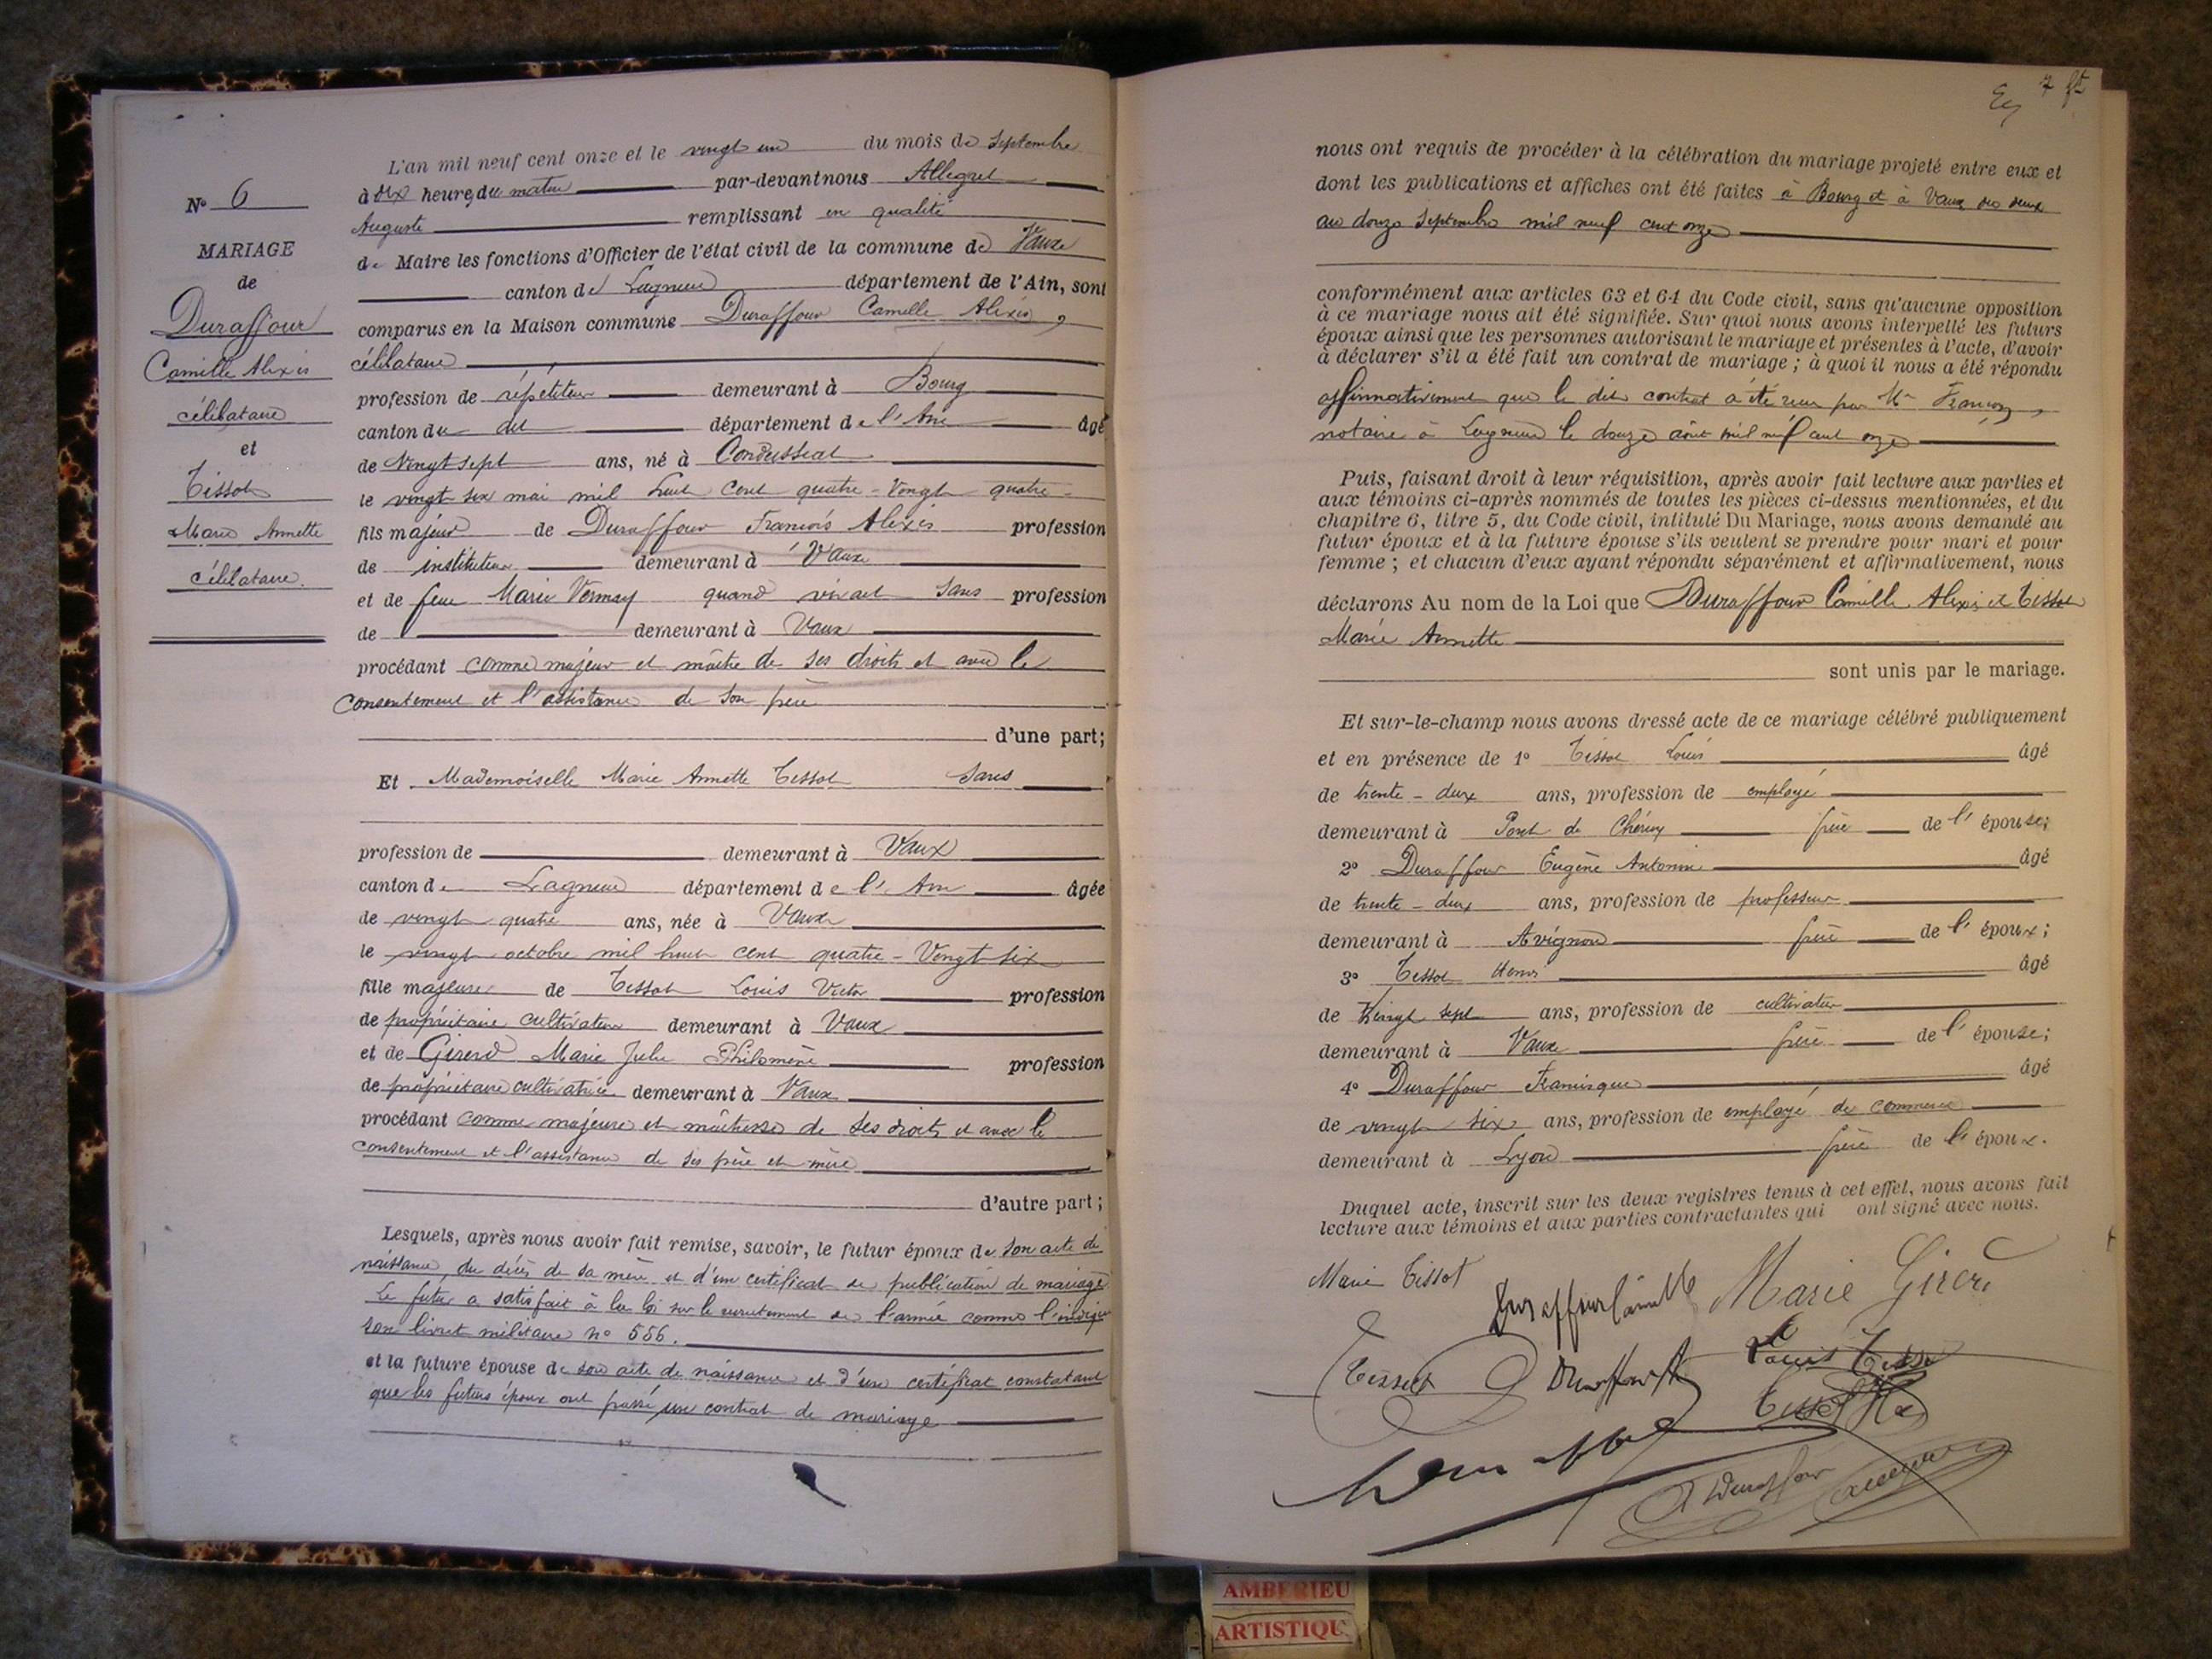 L'an mil neuf cent onze et le vingt un du mois de Septembre
à dix heures du matin par-devant nous Allegret
Auguste remplissant en qualité
de Maire les fonctions d'Officier de l'état civil de la commune de Vaux
canton de Lagnieu département de l'Ain, sont
comparus en la Maison commune Duraffour Camille Alexis,
célibataire
profession de répétiteur demeurant à Bourg
canton du dit département de l'Ain âgé
de vingt sept ans, né à Condeissiat
le vingt six mai mil huit cent quatre-vingt quatre
fils majeur de Duraffour François Alexis profession
de instituteur demeurant à Vaux
et de feue Marie Vermay quand vivait sans profession
de demeurant à Vaux
procédant comme majeur et maître de ses droits et avec le
consentement et l'assistance de son père
d'une part;
Et Mademoiselle Marie Annette Tissot sans
profession de demeurant à Vaux
canton de Lagnieu département de l'Ain âgée
de vingt quatre ans, née à Vaux
le vingt octobre mil huit cent quatre-Vingt six
fille majeure de Tissot Louis Victor profession
de propriétaire cultivateur demeurant à Vaux
et de Girerd Marie Julie Philomène profession
de propriétaire cultivatrice demeurant à Vaux
procédant comme majeure et maîtresse de ses droits et avec le
consentement et l'assistance de ses père et mère
d'autre part;
Lesquels, après nous avoir fait remise, savoir, le futur époux de son acte de
naissance, du décès de sa mère et d'un certificat de publication de mariage
Le futur a satisfait à la loi sur le recrutement de l'armée comme l'indique
son livret militaire n° 556.
et la future épouse de son acte de naissance et d'un certificat constatant
que les futurs époux ont passé un contrat de mariage
N° 6
MARIAGE
de
Duraffour
Camille Alexis
célibataire
et
Tissot
Marie Annette
célibataire.
7
nous ont requis de procéder à la célébration du mariage projeté entre eux et
dont les publications et affiches ont été faites à Bourg et à Vaux du deux
au douze Septembre mil neuf cent onze
conformément aux articles 63 et 64 du Code civil, sans qu'aucune opposition
à ce mariage nous ait été signifiée. Sur quoi nous avons interpellé les futurs
époux ainsi que les personnes autorisant le mariage et présentes à l'acte, d'avoir
à déclarer s'il a été fait un contrat de mariage; à quoi il nous a été répondu
affirmativement que le dit contrat a été reçu par Mr
notaire à Lagnieu le douze août mil neuf cent onze
Puis, faisant droit à leur réquisition, après avoir fait lecture aux parties et
aux témoins ci-après nommés de toutes les pièces ci-dessus mentionnées, et du
chapitre 6, titre 5, du Code civil, intitulé Du Mariage, nous avons demandé au
futur époux et à la future épouse s'ils veulent se prendre pour mari et pour
femme; et chacun d'eux ayant répondu séparément et affirmativement, nous
déclarons Au nom de la Loi que Duraffour Camille Alexis et Tissot
Marie Annette
sont unis par le mariage.
Et sur-le-champ nous avons dressé acte de ce mariage célébré publiquement
et en présence de 1° Tissot Louis âgé
de trente-deux ans, profession de employé
demeurant à Pont de Chéruy frère de l'épouse;
2° Duraffour Eugène Antonin âgé
de trente-deux ans, profession de professeur
demeurant à Avignon frère de l'époux;
3° Tissot Henri âgé
de Vingt sept ans, profession de cultivateur
demeurant à Vaux frère de l'épouse;
4° Duraffour Francisque âgé
de vingt six ans, profession de employé de commerce
demeurant à Lyon frère de l'époux.
Duquel acte, inscrit sur les deux registres tenus à cet effet, nous avons fait
lecture aux témoins et aux parties contractantes qui ont signé avec nous.
Marie Tissot Duraffour Camille Marie Girerd
Tissot Duraffour Louis Tissot
Tissot
Duraffour
AMBERIEU
ARTISTIQU